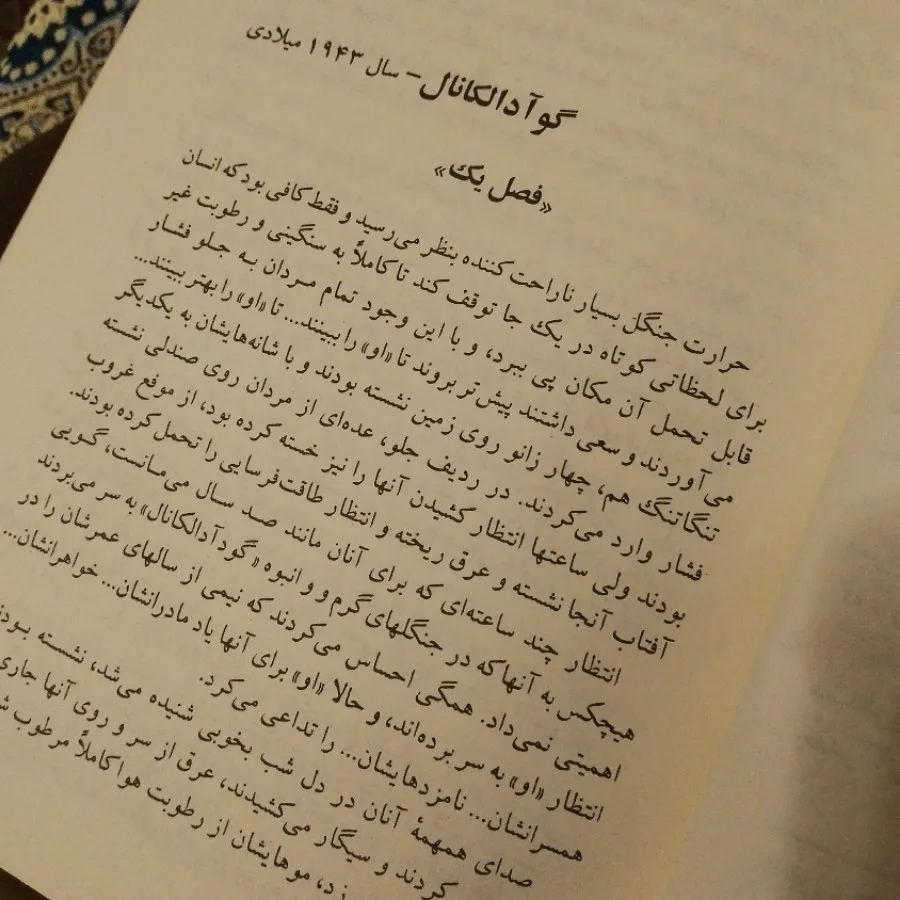 گوآدالکانال – سال ۱۹۴۳ میلادی
«فصل یک»
حرارت جنگل بسیار ناراحت کننده بنظر می‌رسید و فقط کافی بود که انسان
برای لحظاتی کوتاه در یک جا توقف کند تا کاملاً به سنگینی و رطوبت غیر
قابل تحمل آن مکان پی ببرد، و با این وجود تمام مردان به جلو فشار
می‌آوردند و سعی داشتند پیش‌تر بروند تا «او» را ببینند... تا «او» را بهتر ببینند...
تنگاتنگ هم، چهار زانو روی زمین نشسته بودند و با شانه‌هایشان به یکدیگر
فشار وارد می‌کردند. در ردیف جلو، عده‌ای از مردان روی صندلی نشسته
بودند ولی ساعتها انتظار کشیدن آنها را نیز خسته کرده بود، از موقع غروب
آفتاب آنجا نشسته و عرق ریخته و انتظار طاقت‌فرسایی را تحمل کرده بودند.
انتظار چند ساعته‌ای که برای آنان مانند صد سال می‌مانست، گویی
هیچکس به آنها که در جنگلهای گرم و و انبوه «گودآدالکانال» به سر می‌بردند
اهمیتی نمی‌داد. همگی احساس می‌کردند که نیمی از سالهای عمرشان را در
انتظار «او» به سر برده‌اند، و حالا «او» برای آنها یاد مادرانشان... خواهرانشان...
همسرانشان... نامزدهایشان... را تداعی می‌کرد.
صدای همهمهٔ آنان در دل شب بخوبی شنیده می‌شد، نشسته
کردند و سیگار می‌کشیدند، عرق از سر و روی آنها جاری
موهایشان از رطوبت هوا کاملاً مرطوب